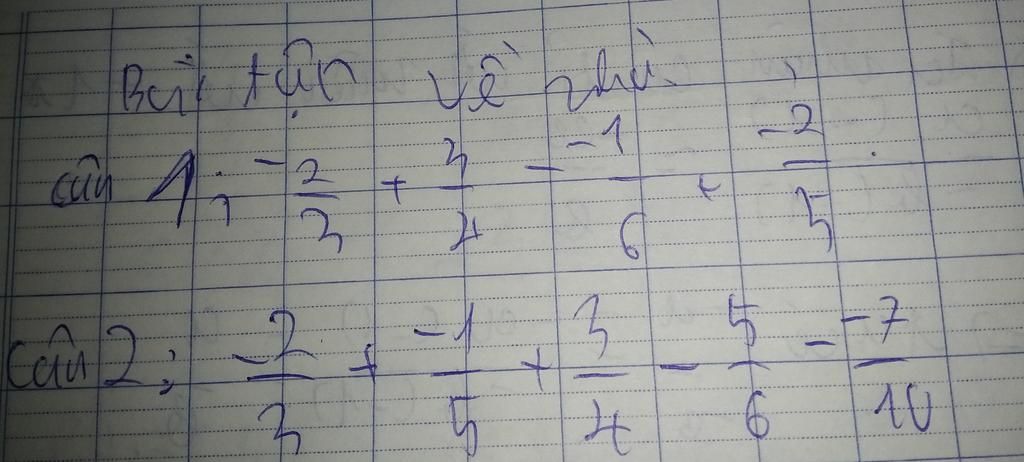 Bài tập về nhà.
Câu 1; -2/3 + 3/4 - -1/6 + -2/5.
Câu 2; -2/3 + -1/5 + 3/4 - 5/6 - -7/10